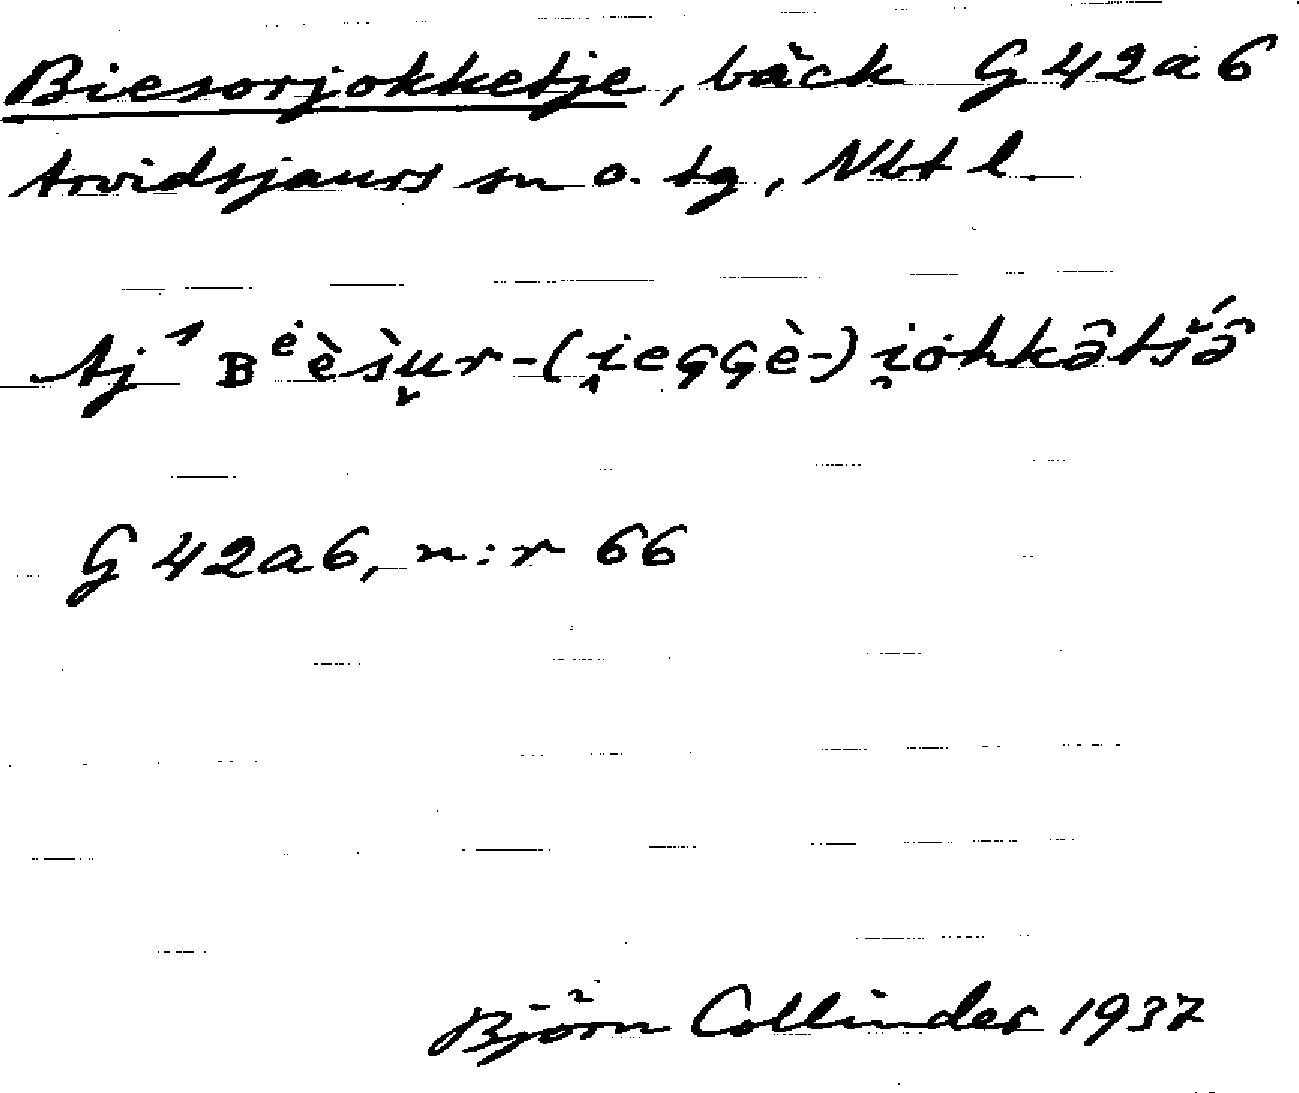 Biesorjokketje, bäck G 42 a 6
Arvidsjaurs sn o. tg, Nbt l.
Aj¹ ʙᵉ̀èsu̬r-(i̭eɢɢè-) i̯òhkâtšấ
G 42 a 6, n:r 66
Björn Collinder 1937